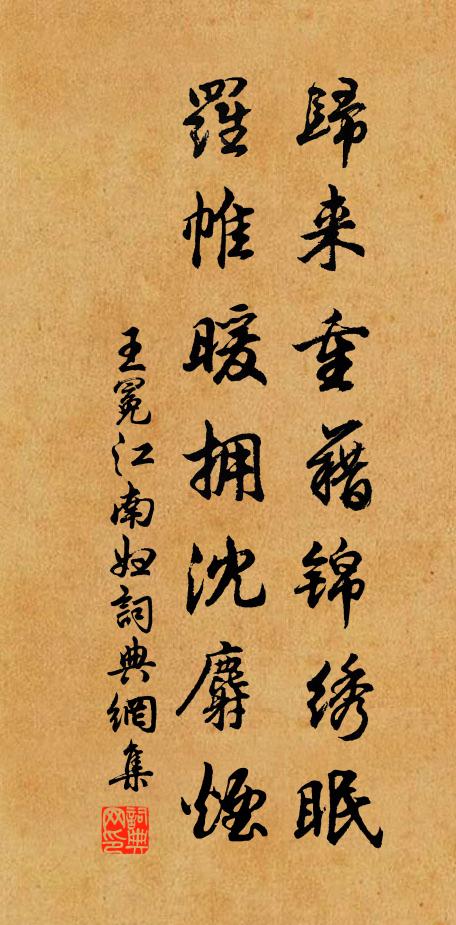 歸来重藉錦绣眠
羅帷暖拥沈麝煙
王冕江南妇詞典網集
詞典网印